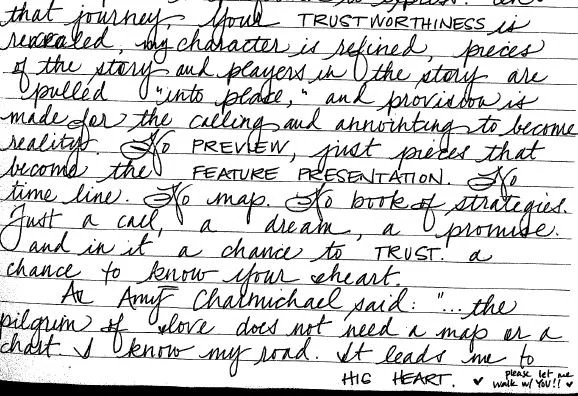 that journey, your TRUSTWORTHINESS is
revealed, my character is refined, pieces
of the story and players in the story are
pulled "into place," and provision is
made for the calling and annointing to become
reality. No PREVIEW, just pieces that
become the FEATURE PRESENTATION. No
time line. No map. No book of strategies.
Just a call, a dream, a promise.
and in it a chance to TRUST. a
chance to know your heart.
As Amy Chalmichael said: "... the
pilgrim of love does not need a map or a
chart. I know my road. It leads me to
HIS HEART. ♥ please let me
walk w/ YOU!! ♥